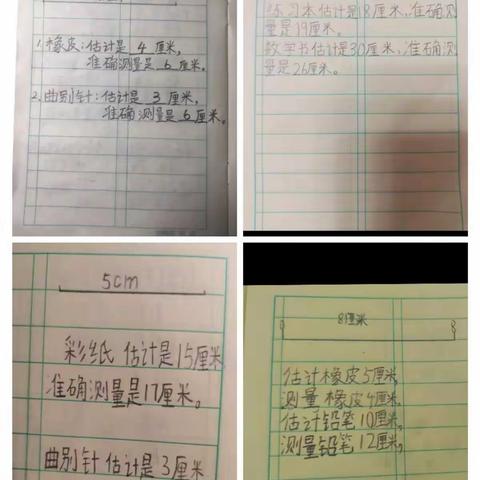 1.橡皮:估计是 4 厘米,
准确测量是 6 厘米。
2.曲别针:估计是 3 厘米,
准确测量是 6 厘米。
练习本估计是18厘米,准确测
量是19厘米。
数学书估计是30厘米,准确测
量是26厘米。
5cm
彩纸 估计是15厘米
准确测量是17厘米。
曲别针 估计是3厘米
8厘米
估计橡皮5厘米
测量橡皮4厘米,
估计铅笔10厘米,
测量铅笔12厘米,